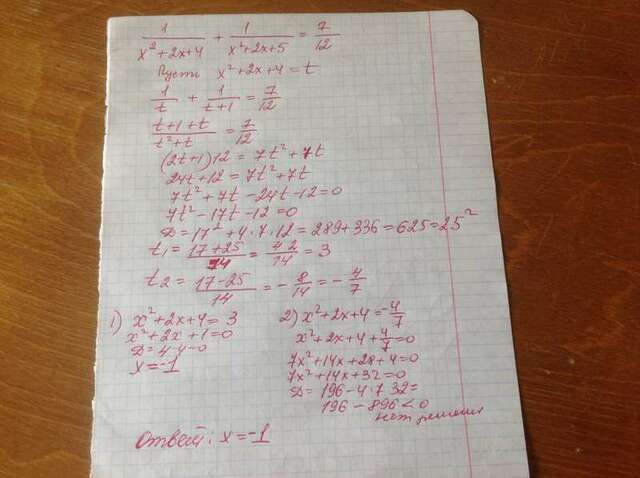 1/(x²+2x+4) + 1/(x²+2x+5) = 7/12
Пусть x²+2x+4 = t
1/t + 1/(t+1) = 7/12
(t+1+t)/(t²+t) = 7/12
(2t+1)12 = 7t²+7t
24t+12 = 7t²+7t
7t²+7t-24t-12=0
7t²-17t-12=0
D=17²+4·7·12=289+336=625=25²
t₁=(17+25)/14=42/14=3
t₂=(17-25)/14=-8/14=-4/7
1) x²+2x+4=3
x²+2x+1=0
D=4-4=0
x=-1
2) x²+2x+4=-4/7
x²+2x+4+4/7=0
7x²+14x+28+4=0
7x²+14x+32=0
D=196-4·7·32=
196-896<0
нет решения
Ответ: x=-1